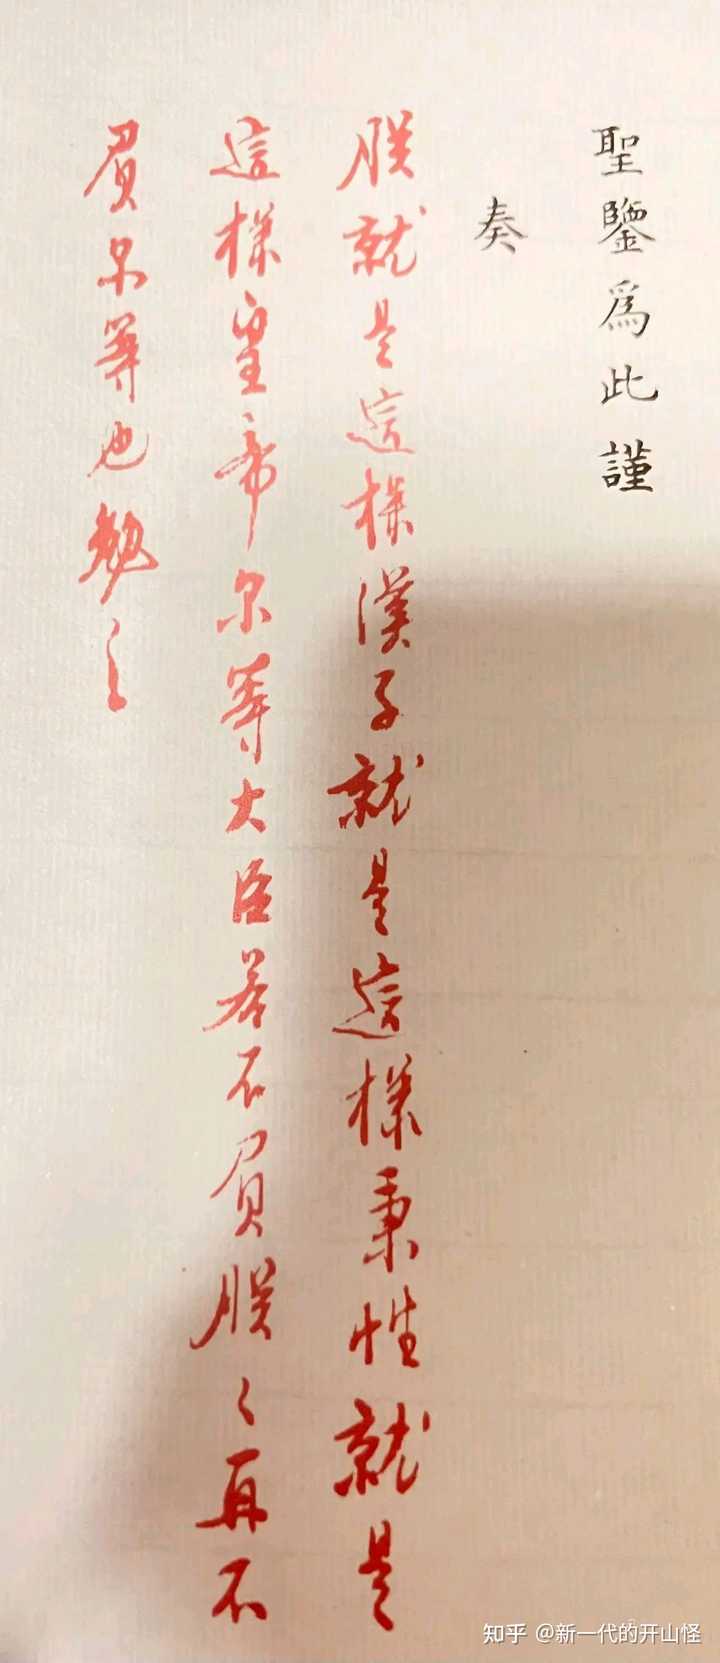 聖鑒為此謹
奏
朕就是這樣漢子就是這樣秉性就是
這樣皇帝尔等大臣若不負朕〻再不
負尔等也勉之
知乎 @新一代的开山怪